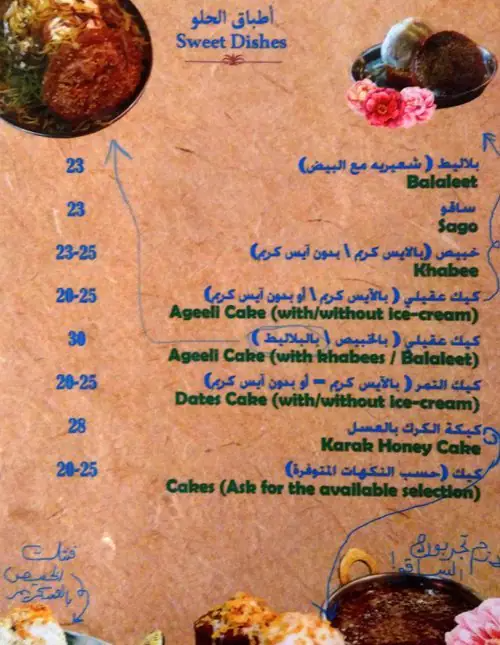 أطباق الحلو
Sweet Dishes
23 بلاليط ( شعيريه مع البيض)
Balaleet
23 ساقو
Sago
23-25 خبيص (بالايس كريم \ بدون آيس كريم)
Khabee
20-25 كيك عقيلي ( بالآيس كريم \ أو بدون آيس كريم)
Ageeli Cake (with/without ice-cream)
30 كيك عقيلي ( بالخبيص \ بالبلاليط )
Ageeli Cake (with khabees / Balaleet)
20-25 كيك التمر ( بالآيس كريم – أو بدون آيس كريم)
Dates Cake (with/without ice-cream)
28 كيكة الكرك بالعسل
Karak Honey Cake
20-25 كيك (حسب النكهات المتوفرة)
Cakes (Ask for the available selection)
تجربون
الساقو!